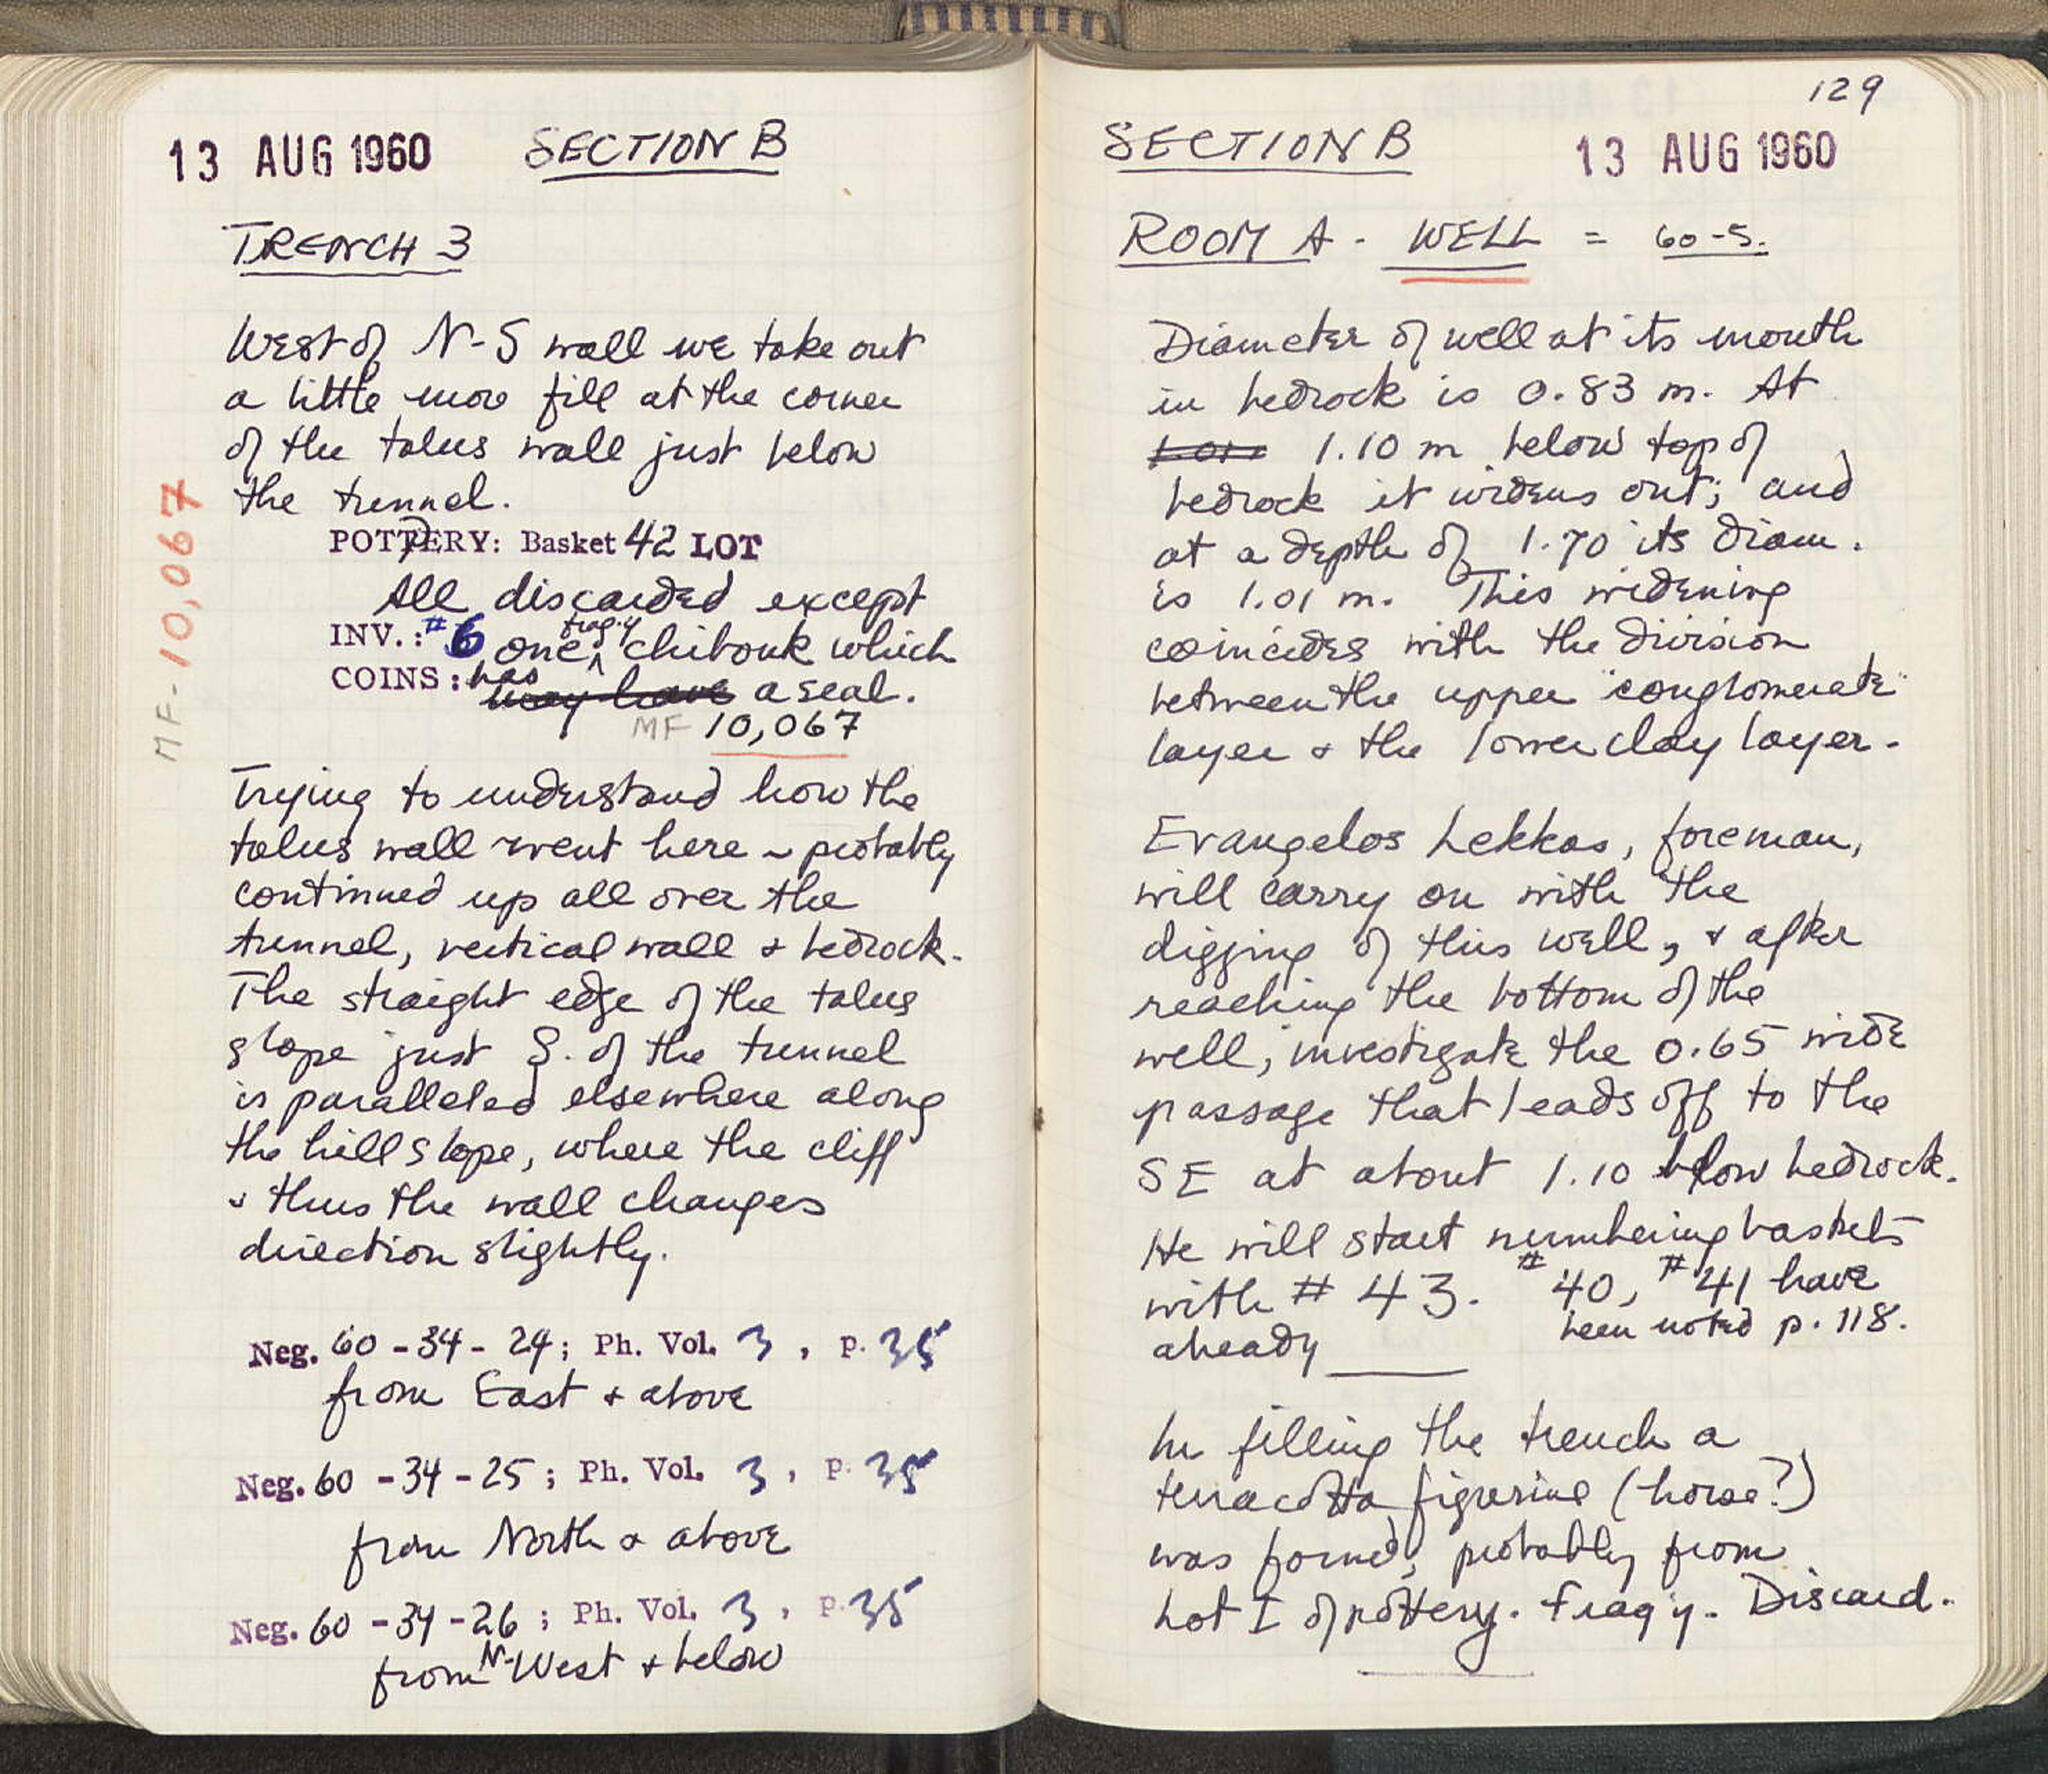 13 AUG 1960 SECTION B
TRENCH 3
West of N-S wall we take out
a little more fill at the corner
of the talus wall just below
the tunnel.
POTTERY: Basket 42 LOT
All discarded except
INV.: #6 one frag'y chibouk which
COINS: has may have a seal.
MF 10,067
MF-10,067
Trying to understand how the
talus wall went here ~ probably
continued up all over the
tunnel, vertical wall & bedrock.
The straight edge of the talus
slope just S. of the tunnel
is paralleled elsewhere along
the hill slope, where the cliff
& thus the wall changes
direction slightly.
Neg. 60-34-24; Ph. Vol. 3, p. 35
from East & above
Neg. 60-34-25; Ph. Vol. 3, p. 35
from North & above
Neg. 60-34-26; Ph. Vol. 3, p. 35
from N-West & below
129
SECTION B 13 AUG 1960
ROOM A - WELL = 60-5.
Diameter of well at its mouth
in bedrock is 0.83 m. At
1.10 m below top of
bedrock it widens out; and
at a depth of 1.70 its diam.
is 1.01 m. This widening
coincides with the division
between the upper "conglomerate"
layer & the lower clay layer.
Evangelos Lekkas, foreman,
will carry on with the
digging of this well, & after
reaching the bottom of the
well, investigate the 0.65 wide
passage that leads off to the
SE at about 1.10 below bedrock.
He will start numbering baskets
with # 43. #40, #41 have
been noted p. 118.
already
In filling the trench a
terracotta figurine (horse?)
was found, probably from
Lot I of pottery. Frag'y. Discard.